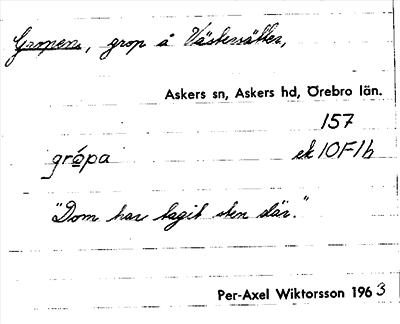 Gropen, grop å Västersätter,
Askers sn, Askers hd, Örebro län.
157
grópa ek 10F1b
"Dom har tagit sten där."
Per-Axel Wiktorsson 1963